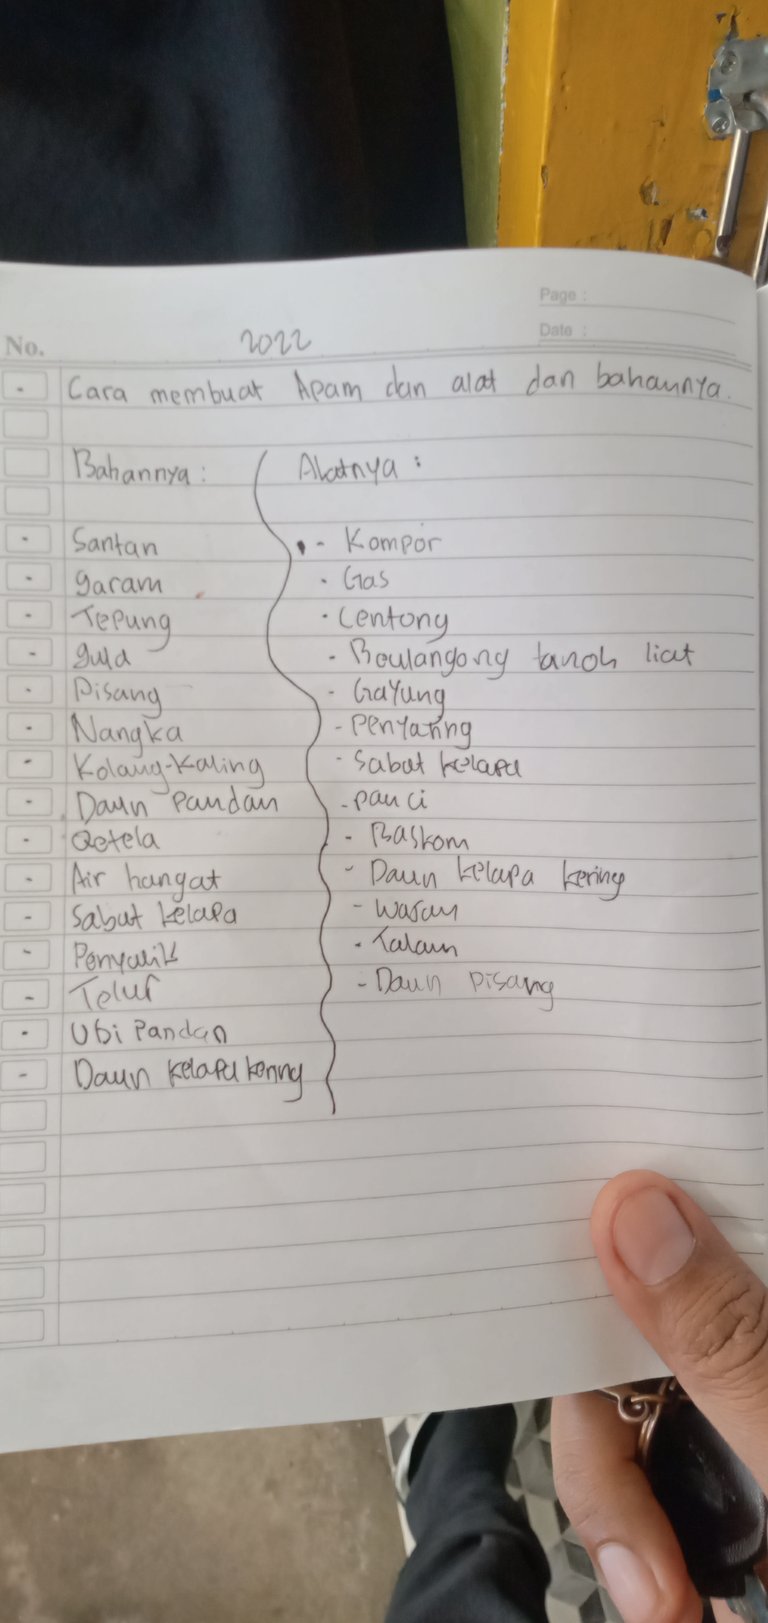 Page :
Date :
No.
2022
Cara membuat Apam dan alat dan bahannya.
Bahannya :
Santan
garam
Tepung
gula
Pisang
Nangka
Kolang-Kaling
Daun Pandan
Qetela
Air hangat
Sabut kelapa
Penyulik
Telur
Ubi Pandan
Daun kelapa kering
Alatnya :
- Kompor
- Gas
- Centong
- Boulangong tanoh liat
- Gayung
- Penyaring
- Sabat kelapa
- panci
- Baskom
- Daun kelapa kering
- Wasan
- Talam
- Daun pisang